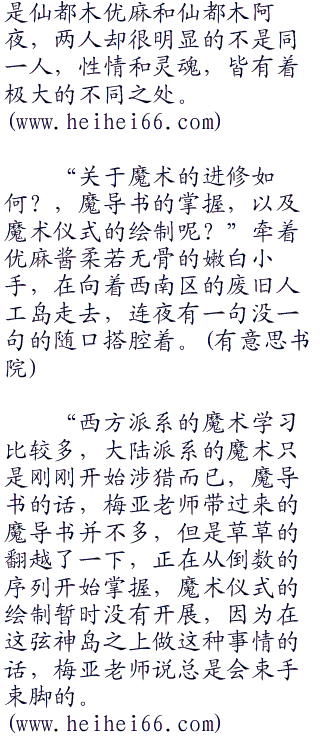 是仙都木优麻和仙都木阿
夜，两人却很明显的不是同
一人，性情和灵魂，皆有着
极大的不同之处。
(www.heihei66.com)
“关于魔术的进修如
何？，魔导书的掌握，以及
魔术仪式的绘制呢？”牵着
优麻酱柔若无骨的嫩白小
手，在向着西南区的废旧人
工岛走去，连夜有一句没一
句的随口搭腔着。(有意思书
院)
“西方派系的魔术学习
比较多，大陆派系的魔术只
是刚刚开始涉猎而已，魔导
书的话，梅亚老师带过来的
魔导书并不多，但是草草的
翻越了一下，正在从倒数的
序列开始掌握，魔术仪式的
绘制暂时没有开展，因为在
这弦神岛之上做这种事情的
话，梅亚老师说总是会束手
束脚的。
(www.heihei66.com)